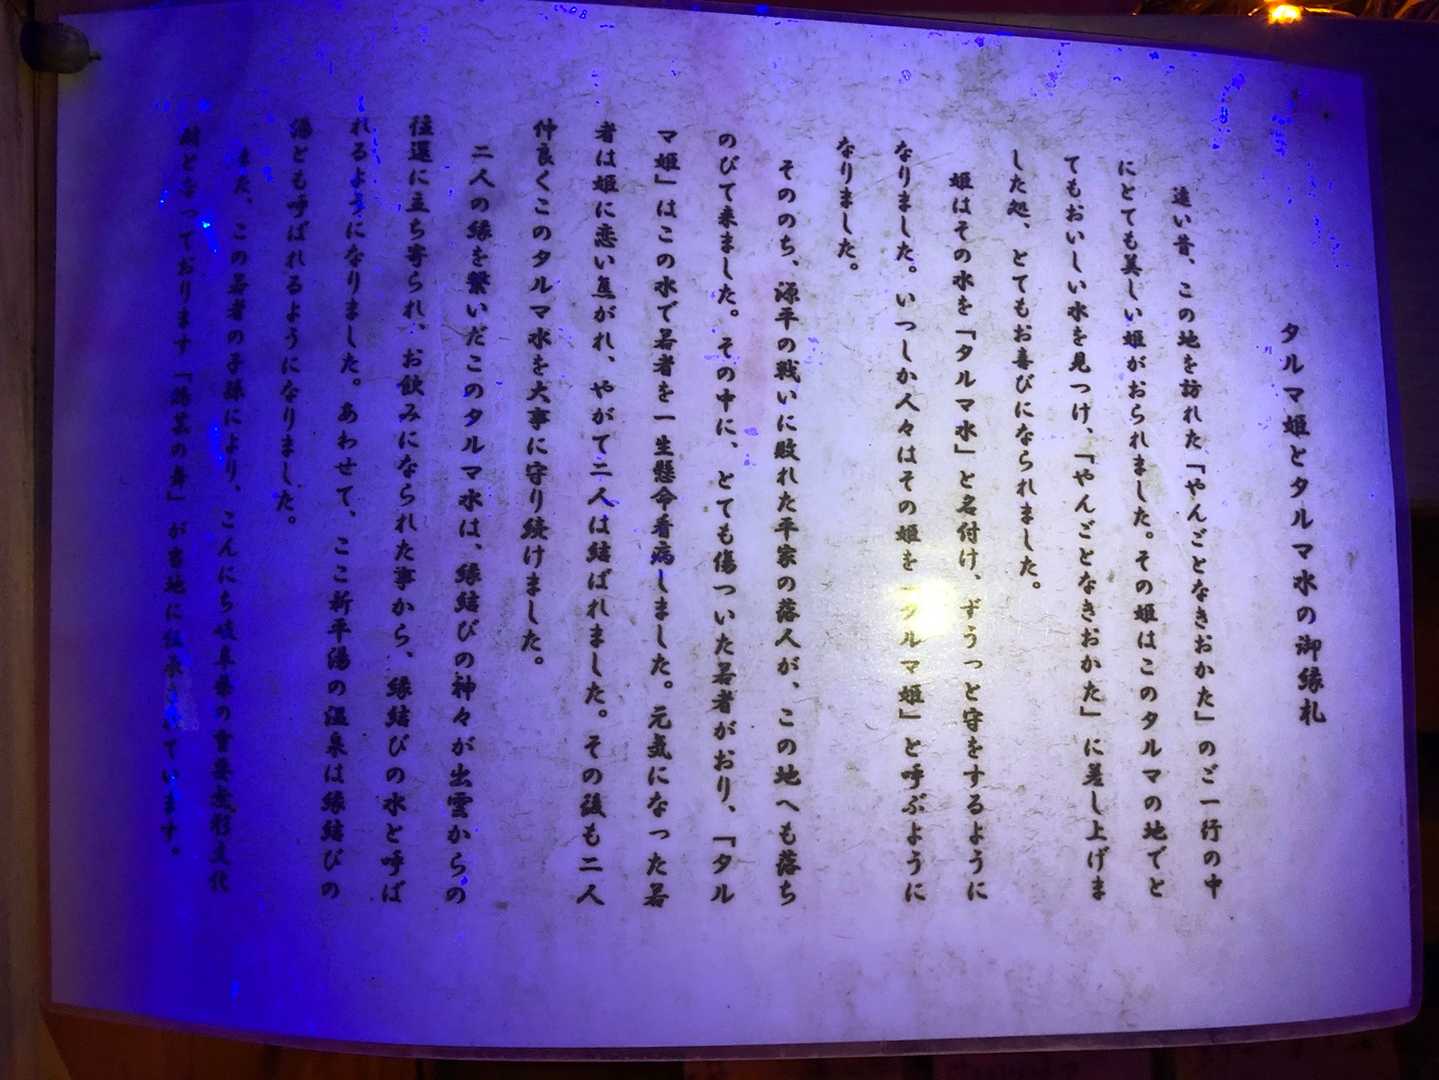 タルマ姫とタルマ水の御縁札
遠い昔、この地を訪れた「やんごとなきおかた」のご一行の中
にとても美しい姫がおられました。その姫はこのタルマの地でと
てもおいしい水を見つけ、「やんごとなきおかた」に差し上げま
した処、とてもお喜びになられました。
姫はその水を「タルマ水」と名付け、ずうっと守をするように
なりました。いつしか人々はその姫を「タルマ姫」と呼ぶように
なりました。
そののち、源平の戦いに敗れた平家の落人が、この地へも落ち
のびて来ました。その中に、とても傷ついた若者がおり、「タル
マ姫」はこの水で若者を一生懸命看病しました。元気になった若
者は姫に恋い焦がれ、やがて二人は結ばれました。その後も二人
仲良くこのタルマ水を大事に守り続けました。
二人の縁を繋いだこのタルマ水は、縁結びの神々が出雲からの
往還に立ち寄られ、お飲みになられた事から、縁結びの水と呼ば
れるようになりました。あわせて、ここ新平湯の温泉は縁結びの
湯とも呼ばれるようになりました。
また、この若者の子孫により、こんにち岐阜県の重要無形文化
財となっております「鶏芸の舞」が当地に伝承されています。